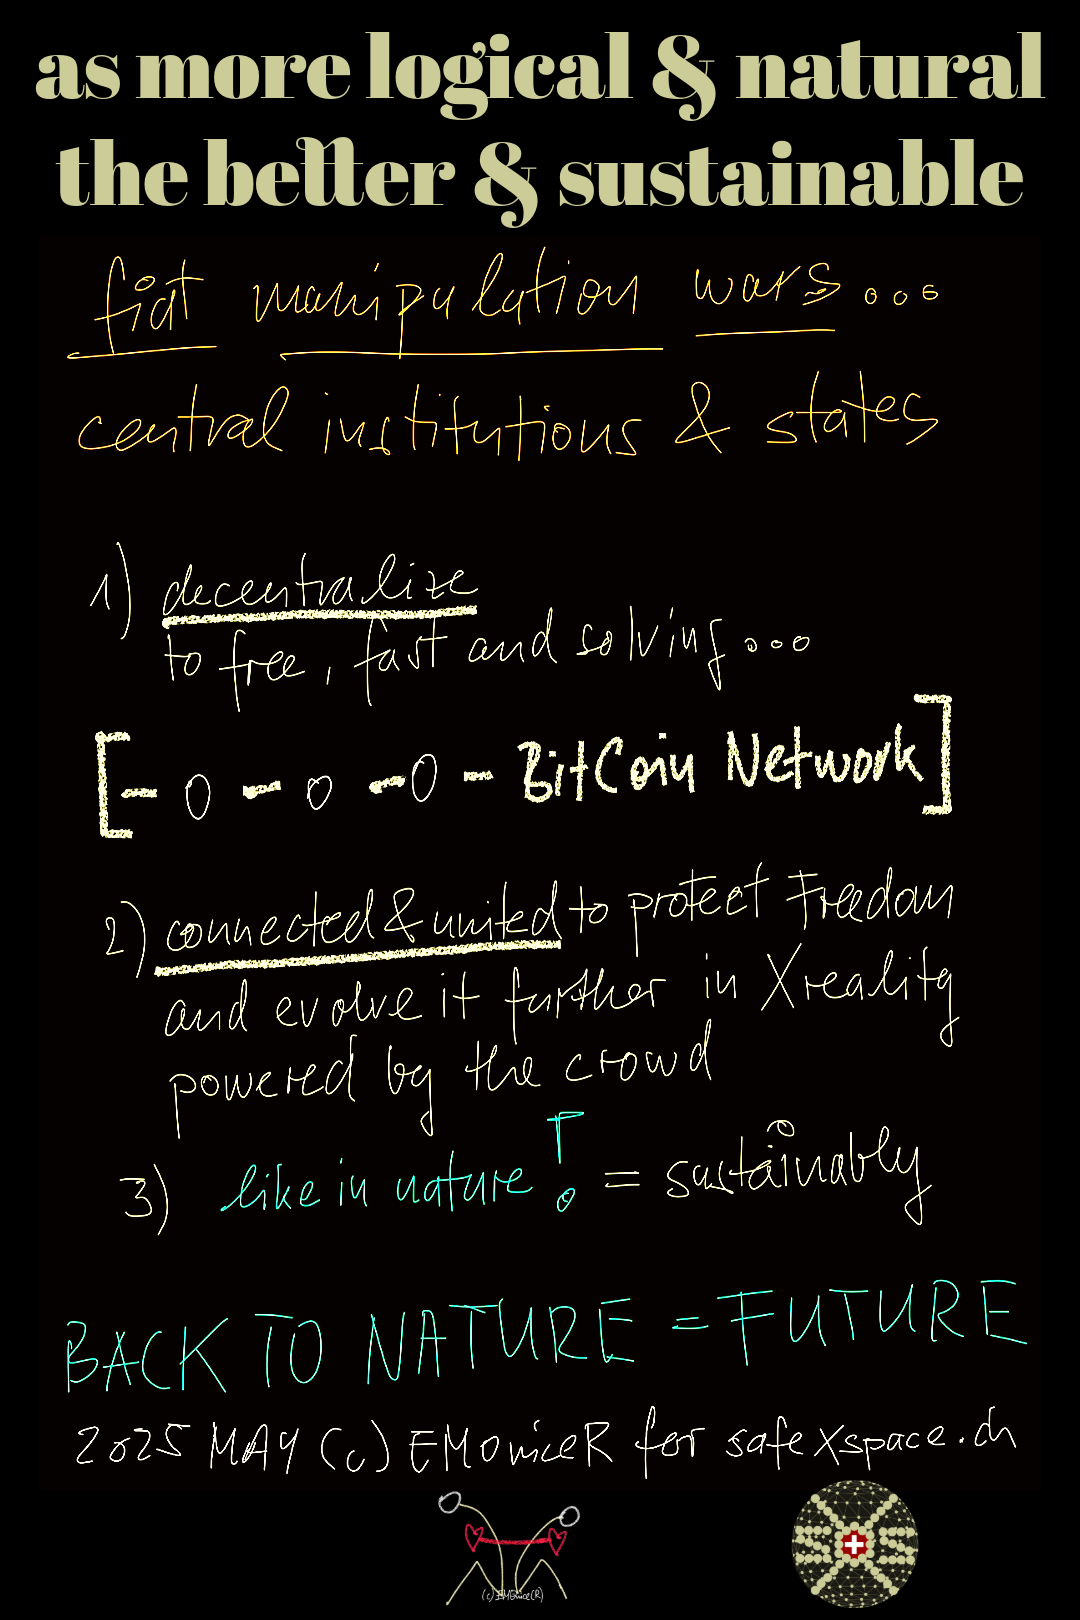 as more logical & natural
the better & sustainable
fiat manipulation wars...
central institutions & states
1) decentralize
to free, fast and solving...
[- 0 - 0 - 0 - BitCoin Network]
2) connected & united to protect Freedom
and evolve it further in Xreality
powered by the crowd
3) like in nature! = sustainably
BACK TO NATURE = FUTURE
2025 MAY (c) EMOniceR for safeXspace.ch
(c) EMOnice(R)